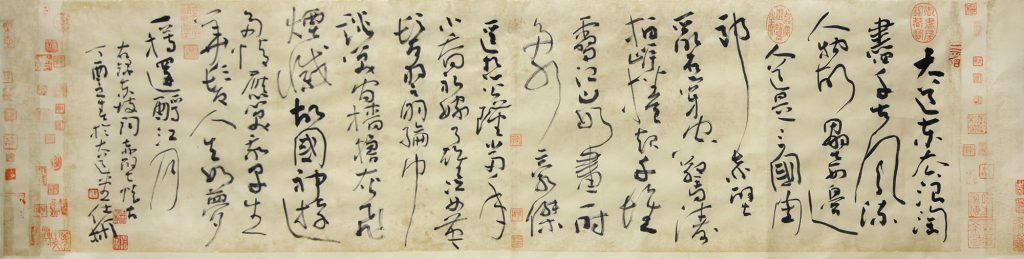 大江東去浪淘
盡千古風流
人物故壘西邊
人道是三國周
郎赤壁
亂石穿空驚濤
拍岸捲起千堆
雪江山如畫一時
多少豪傑
遙想公瑾當年
小喬初嫁了雄姿英
發羽扇綸巾
談笑間檣櫓灰飛
煙滅故國神遊
多情應笑我早生
華髮人生如夢
一樽還酹江月
東坡詞赤壁懷古
丁酉